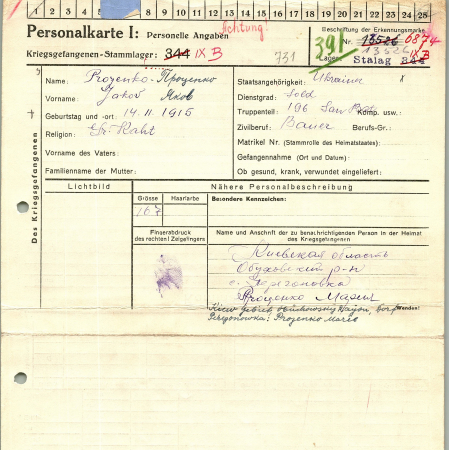 1 2 3 4 5 8 9 10 11 12 13 14 15 16 17 18 19 20 21 22 23 24 25
Achtung!
Personalkarte I: Personelle Angaben
Beschriftung der Erkennungsmarke
Nr. 13526 0874
13526
Kriegsgefangenen-Stammlager: 344 IX B
731
391
Lager: Stalag 344 IX B
Des Kriegsgefangenen
Name: Prozenko - Проценко
Vorname: Jakov Яков
Geburtstag und -ort: 14.11.1915
Religion:
Vorname des Vaters:
Familienname der Mutter:
Staatsangehörigkeit: Ukraine
Dienstgrad: Sold
Truppenteil: 196 San Komp. usw.:
Zivilberuf: Bauer Berufs-Gr.:
Matrikel Nr. (Stammrolle des Heimatstaates):
Gefangennahme (Ort und Datum):
Ob gesund, krank, verwundet eingeliefert:
Lichtbild
Nähere Personalbeschreibung
Grösse Haarfarbe
167
Besondere Kennzeichen:
Fingerabdruck
des rechten(!) Zeigefingers
Name und Anschrift der zu benachrichtigenden Person in der Heimat
des Kriegsgefangenen
Киевская область
Обуховский р-н
с. Перегоновка
Проценко Мария
Wenden!
Peregonowka: Prozenko Maria